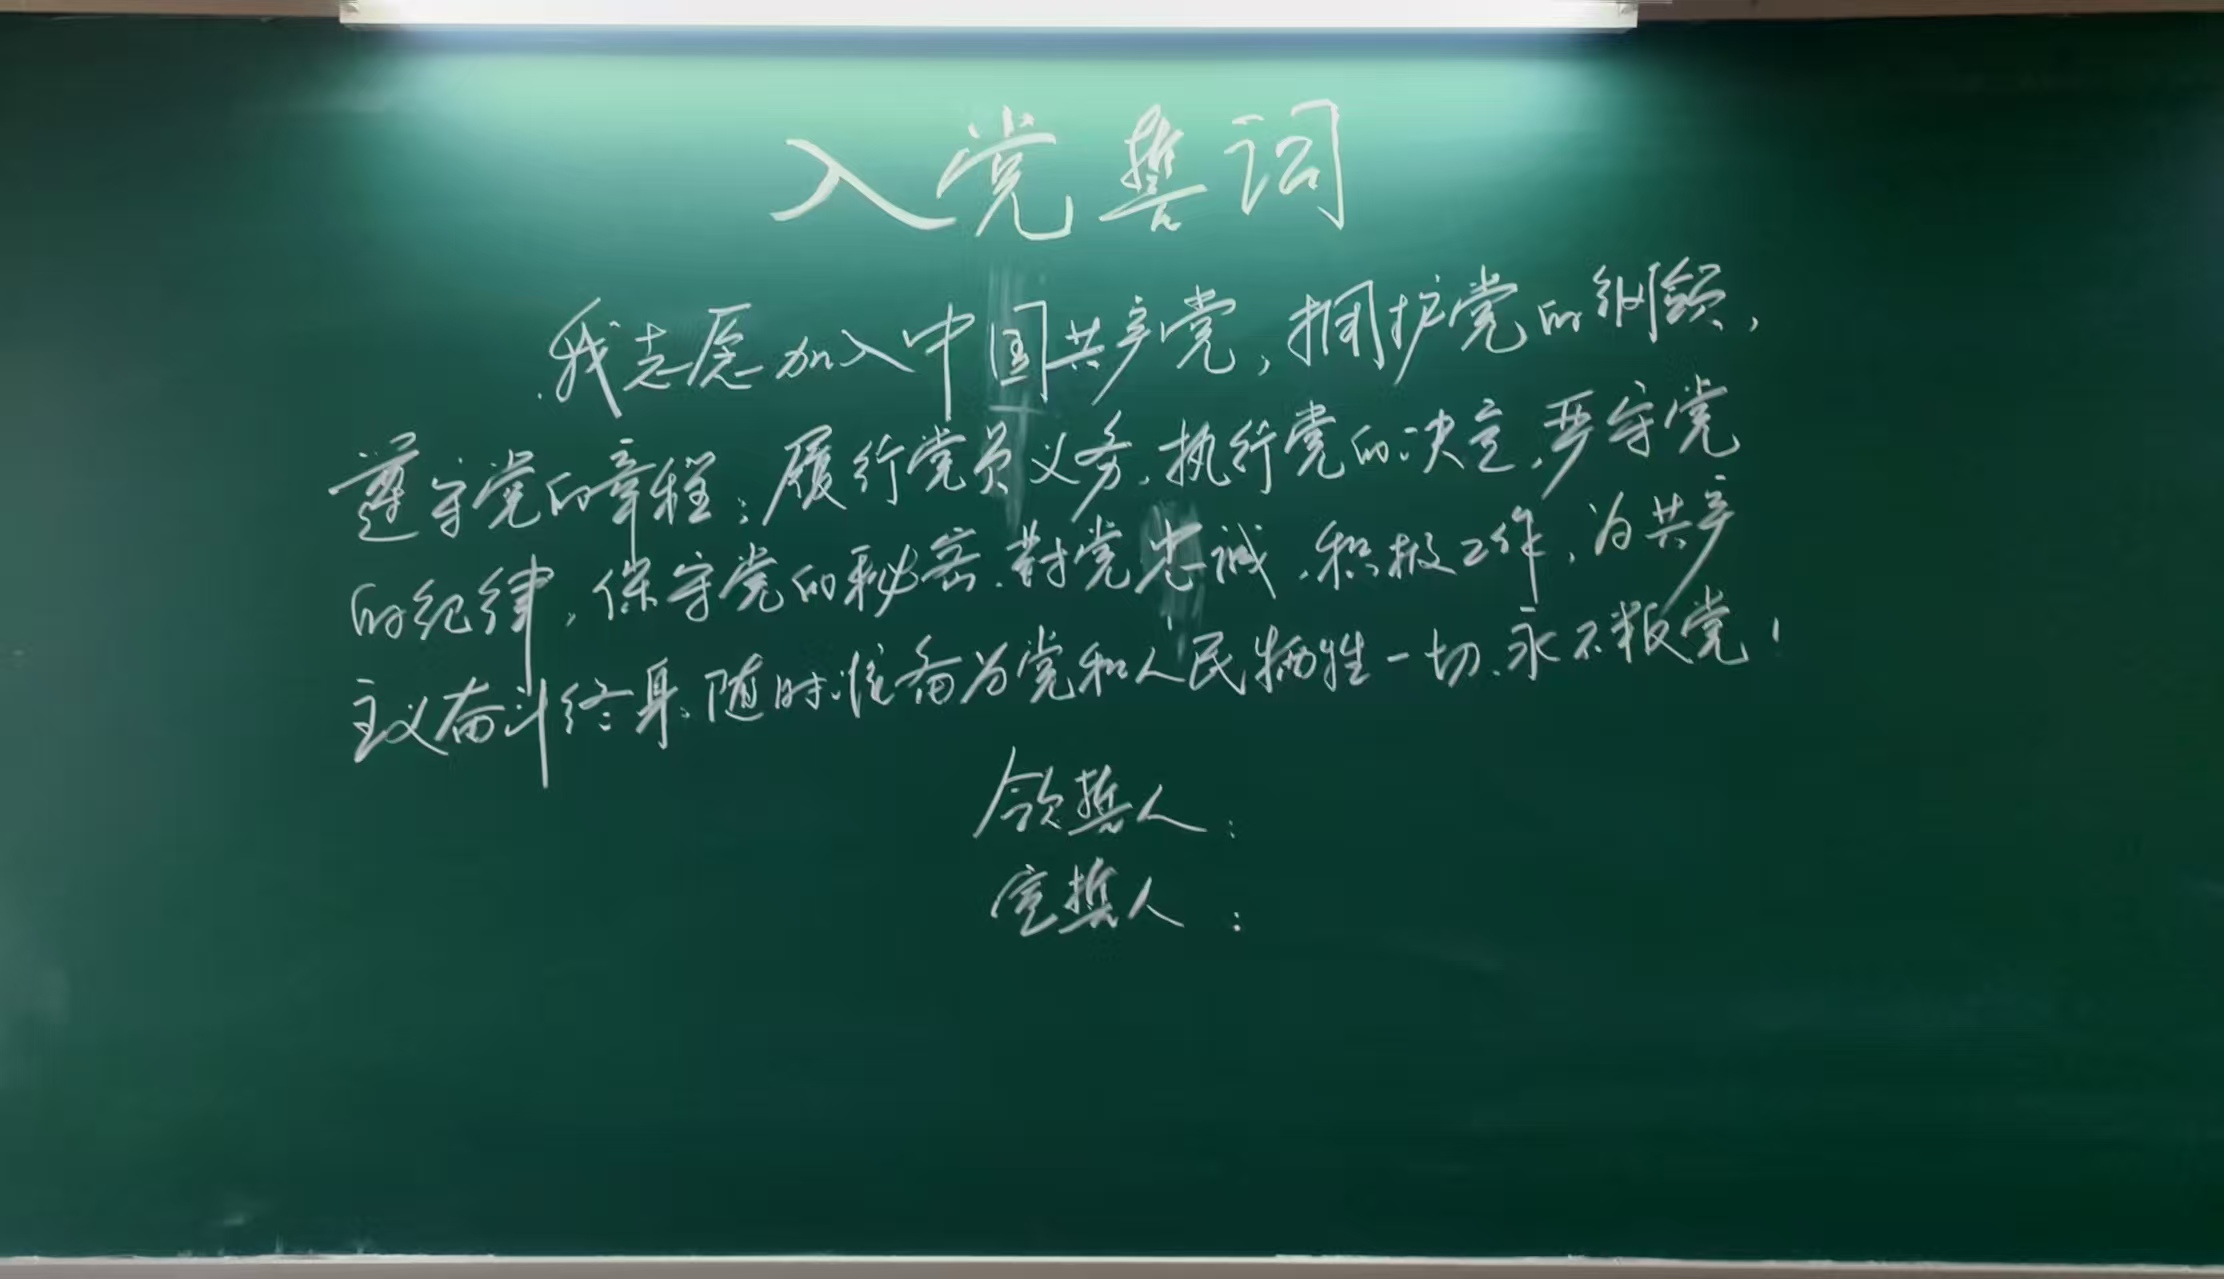 入党誓词
我志愿加入中国共产党，拥护党的纲领，
遵守党的章程；履行党员义务，执行党的决定，严守党
的纪律，保守党的秘密，對党忠诚，积极工作，为共产
主义奋斗终身，随时准备为党和人民牺牲一切，永不叛党！
领誓人：
宣誓人：